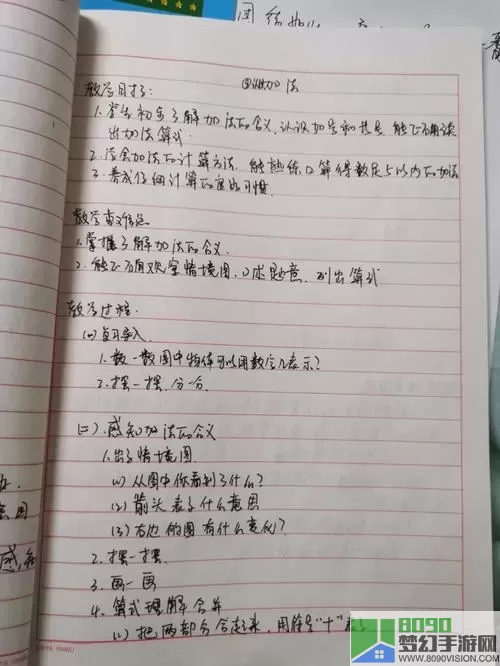 认识加法
教学目标:
1. 学生初步了解加法的含义,认识加号和等号,能正确读
出加法算式
2. 学会加法的计算方法,能熟练口算得数是5以内的加法
3. 养成仔细计算的良好习惯
教学重难点
1. 掌握了解加法的含义.
2. 能正确观察情境图,口述题意,列出算式
教学过程
(一) 复习导入
1. 数一数图中物体可以用数字几表示?
2. 摆一摆,分一分
(二). 感知加法的含义
1. 出示情境图
(1) 从图中你看到了什么?
(2) 箭头表示什么意思
(3) 右边的图有什么变化?
2. 摆一摆
3. 画一画
4. 算式理解合并
(1) 把两部分合起来,用符号"+"表示
8090
梦幻手游网
WWW.8090VISION.COM